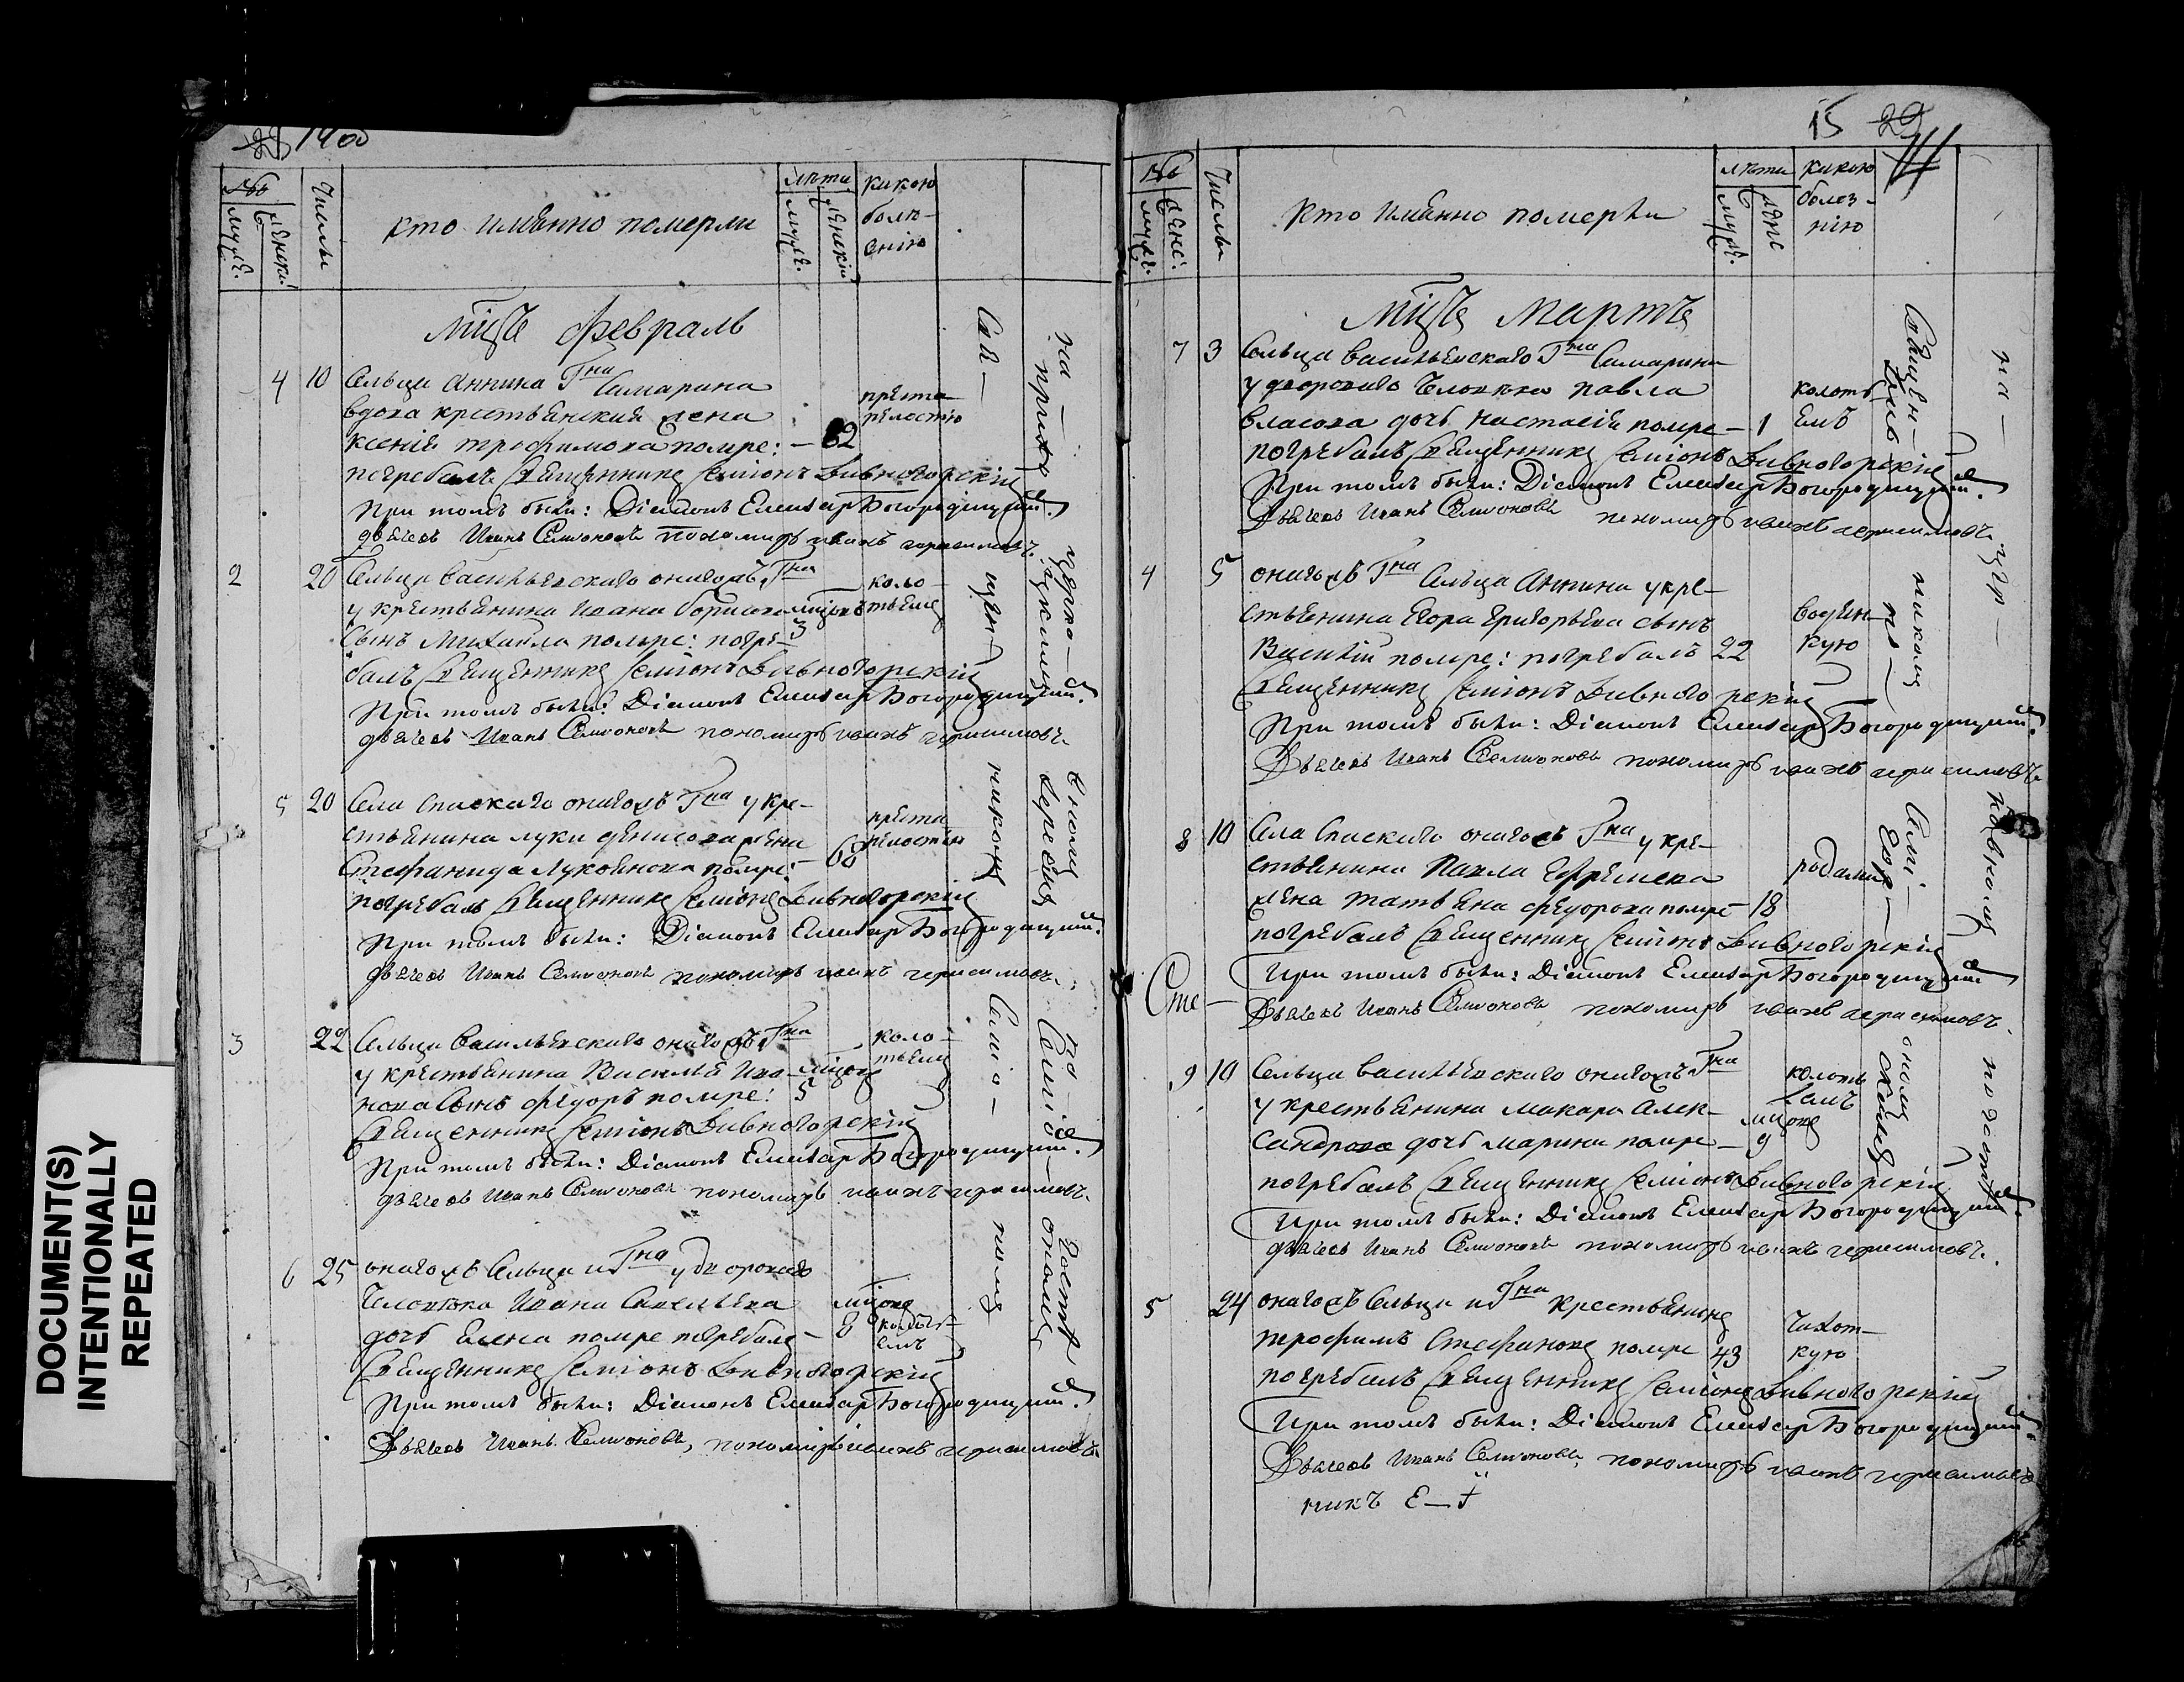 DOCUMENT(S)
INTENTIONALLY
REPEATED
1400
№
мужс.
женск:
Числы
кто имянно померли
лѣта
мужс.
женскія
какою
болѣ-
знію
мцъ февраль
4 10 Сельца Аннина Гна Самарина
вдова крестьянская жена
ксенія трофимова помре: — 82
преста-
релостію
погребалъ Священникъ Семіонъ Дивногорскій
При томъ были: Діаконъ Елеазаръ Богородицкий
дьячекъ Иванъ Семионовъ пономарь иванъ герасимовъ.
2 20 Сельца васильевскаго онагожъ Гна
у крестьянина Ивана борисова мцовъ
сынъ Михаила помре: погре- 3
коло-
тьемъ
балъ Священникъ Семіонъ Дивногорскій
При томъ были: Діаконъ Елеазаръ Богородицкий
дьячекъ Иванъ Семионовъ пономарь иванъ герасимовъ.
5 20 Села Спаскаго онагожъ Гна у кре-
стьянина луки денисова жена
Стефанида Луковнова помре: — 68
преста
релостію
погребалъ Священникъ Семіонъ Дивногорскій
При томъ были: Діаконъ Елеазаръ Богородицкий
дьячекъ Иванъ Семионовъ пономарь иванъ герасимовъ.
3 22 Сельца васильевскаго онагожъ Гна
у крестьянина Василья Ива- мцовъ
нова сынъ федоръ помре: 5
коло-
тьемъ
Священникъ Семіонъ Дивногорскій
При томъ были: Діаконъ Елеазаръ Богородицкий
дьячекъ Иванъ Семионовъ пономарь иванъ герасимовъ.
6 25 онагожъ Сельца и Гна у двороваго
Человѣка Ивана Савельева мцовъ
дочь Елена помре погребалъ — 8
колоть-
емъ
Священникъ Семіонъ Дивногорскій
При томъ были: Діаконъ Елеазаръ Богородицкий
Дьячекъ Иванъ Семионовъ, пономарь иванъ герасимовъ
15 29
№
мужс.
женс:
Числы
Кто имянно померли
лѣта
мужс.
женс
какою
болез-
нію
мцъ Мартъ
7 3 Сельца васильевскаго Гна Самарина
у двороваго Человѣка павла
власова дочь настасія помре — 1
колоть
емъ
погребалъ Священникъ Семіонъ Дивногорскій
При томъ были: Діаконъ Елеазаръ Богородицкий
Дьячекъ Иванъ Семионовъ пономарь иванъ герасимовъ.
4 5 онагожъ Гна Сельца Аннина у кре-
стьянина Егора григорьева сынъ
Василій помре: погребалъ 22
водян-
кую
Священникъ Семіонъ Дивногорскій
При томъ были: Діаконъ Елеазаръ Богородицкий
Дьячекъ Иванъ Семионовъ пономарь иванъ герасимовъ.
8 10 Села Спаскаго онагожъ Гна у кре-
стьянина Павла Ефремова
жена татьяна федорова помре — 18
родами
погребалъ Священникъ Семіонъ Дивногорскій
При томъ были: Діаконъ Елеазаръ Богородицкий
Сте — Дьячекъ Иванъ Семионовъ пономарь иванъ герасимовъ.
9 10 Сельца васильевскаго онагожъ Гна
у крестьянина макара Алек- мцовъ
сандрова дочь марина помре — 9
колоть
емъ
погребалъ Священникъ Семіонъ Дивногорскій
При томъ были: Діаконъ Елеазаръ Богородицкий
дьячекъ Иванъ Семионовъ пономарь иванъ герасимовъ.
5 24 онагожъ Сельца и Гна крестьянинъ
трофимъ Стефановъ помре 43
Чахот-
кую
погребалъ Священникъ Семіонъ Дивногорскій
При томъ были: Діаконъ Елеазаръ Богородицкий
Дьячекъ Иванъ Семионовъ, пономарь иванъ герасимовъ
никъ Е — †